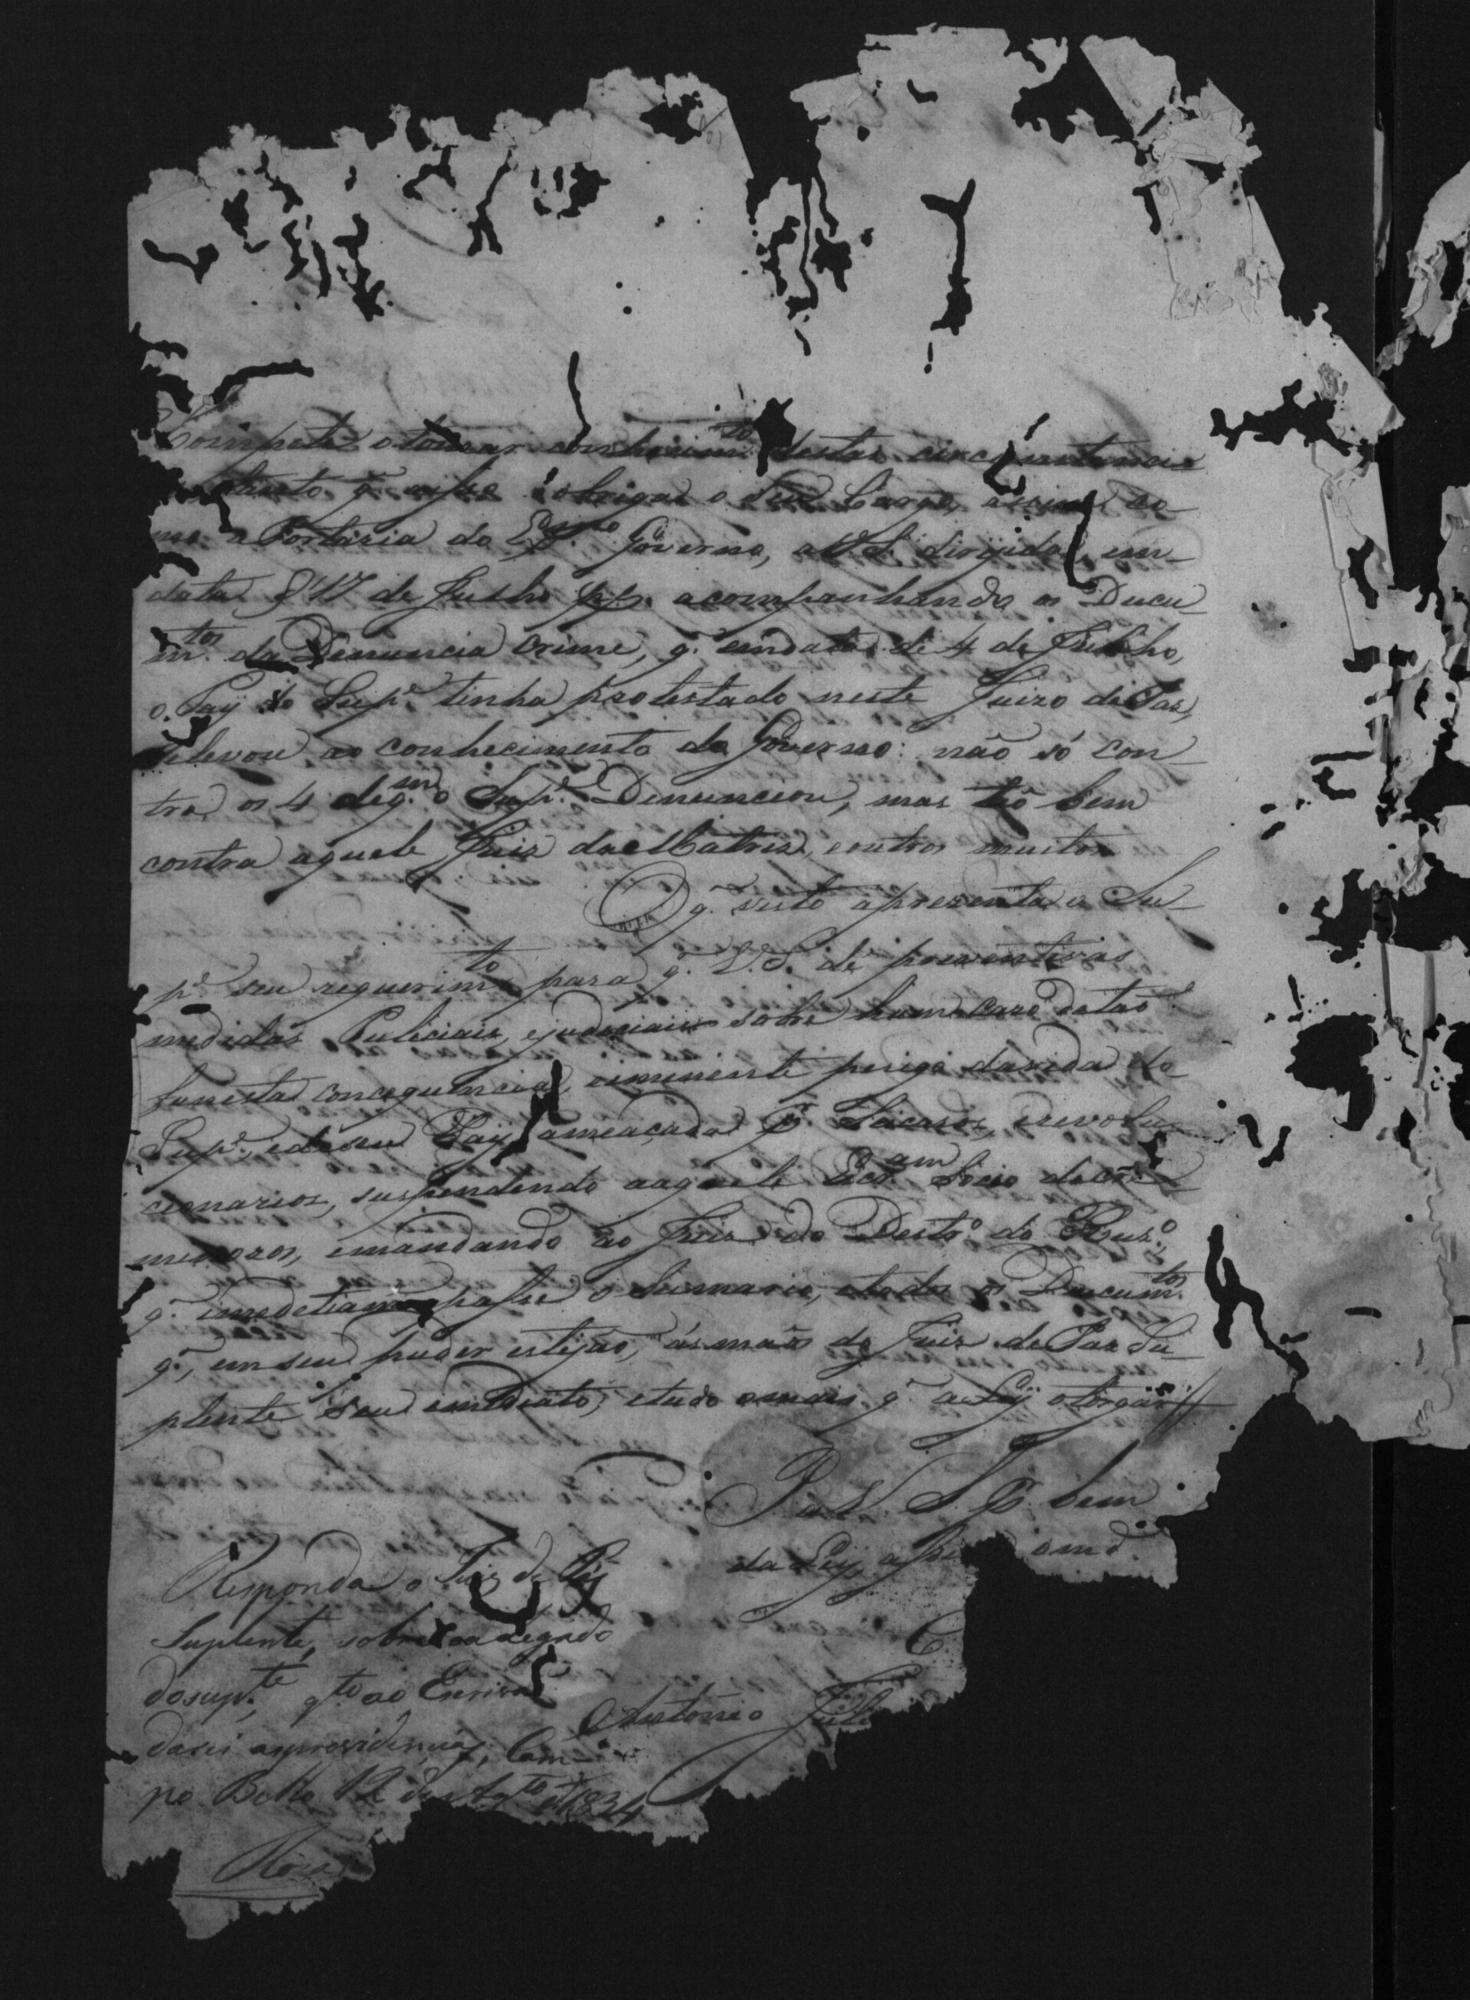 Compete o tomar conhecim.to destas circunstancias
q.e obrigar o Seu Cargo, assim co-
mo a Portaria do Ex.mo Governo, a V.S. dirijida em
data d'17 de Junho p.p. acompanhando os Ducu-
m.tos da Denuncia Crime, q. em data de 4 de Junho,
o Pay do Sup.e tinha protestado neste Juizo de Paz,
elevou ao conhecimento do Governo: não só con-
tra os 4 de q.m o Sup.e Denunciou, mas tão bem
contra aquele Juiz da Matriz, e outros muitos
O q. visto aprezenta o Su-
p.e seu requerim.to para q. V.S. dê preventivas
medidas Puliciais, e judiciais sobre hum cazo de tão
funesta consequencia, eminente perigo da vida do
Sup.e, e de seu Pay, ameaçada p.r Sicarios, e revolu-
cionarios, suspendendo a aquele Socio de cri-
minozos, e mandando ao Juiz do Destr.o do Ruz.o,
q. imediatam.te passe o Sumario, e todos os Documt.os
q., em seu puder estejão, ás mãos do Juiz de Paz Su-
plente seu imediato, e tudo o mais q. a Ley otorgar //
P. a V. S. S. bem
da Ley, a m.d
Responda o Juiz de Páz
Suplente, sobre o alegado
do sup.te, q.to ao Escrivão
darei as providencias; Cam-
po Bello 12 de Ag.to de 1834
C.
Antonio
Roza